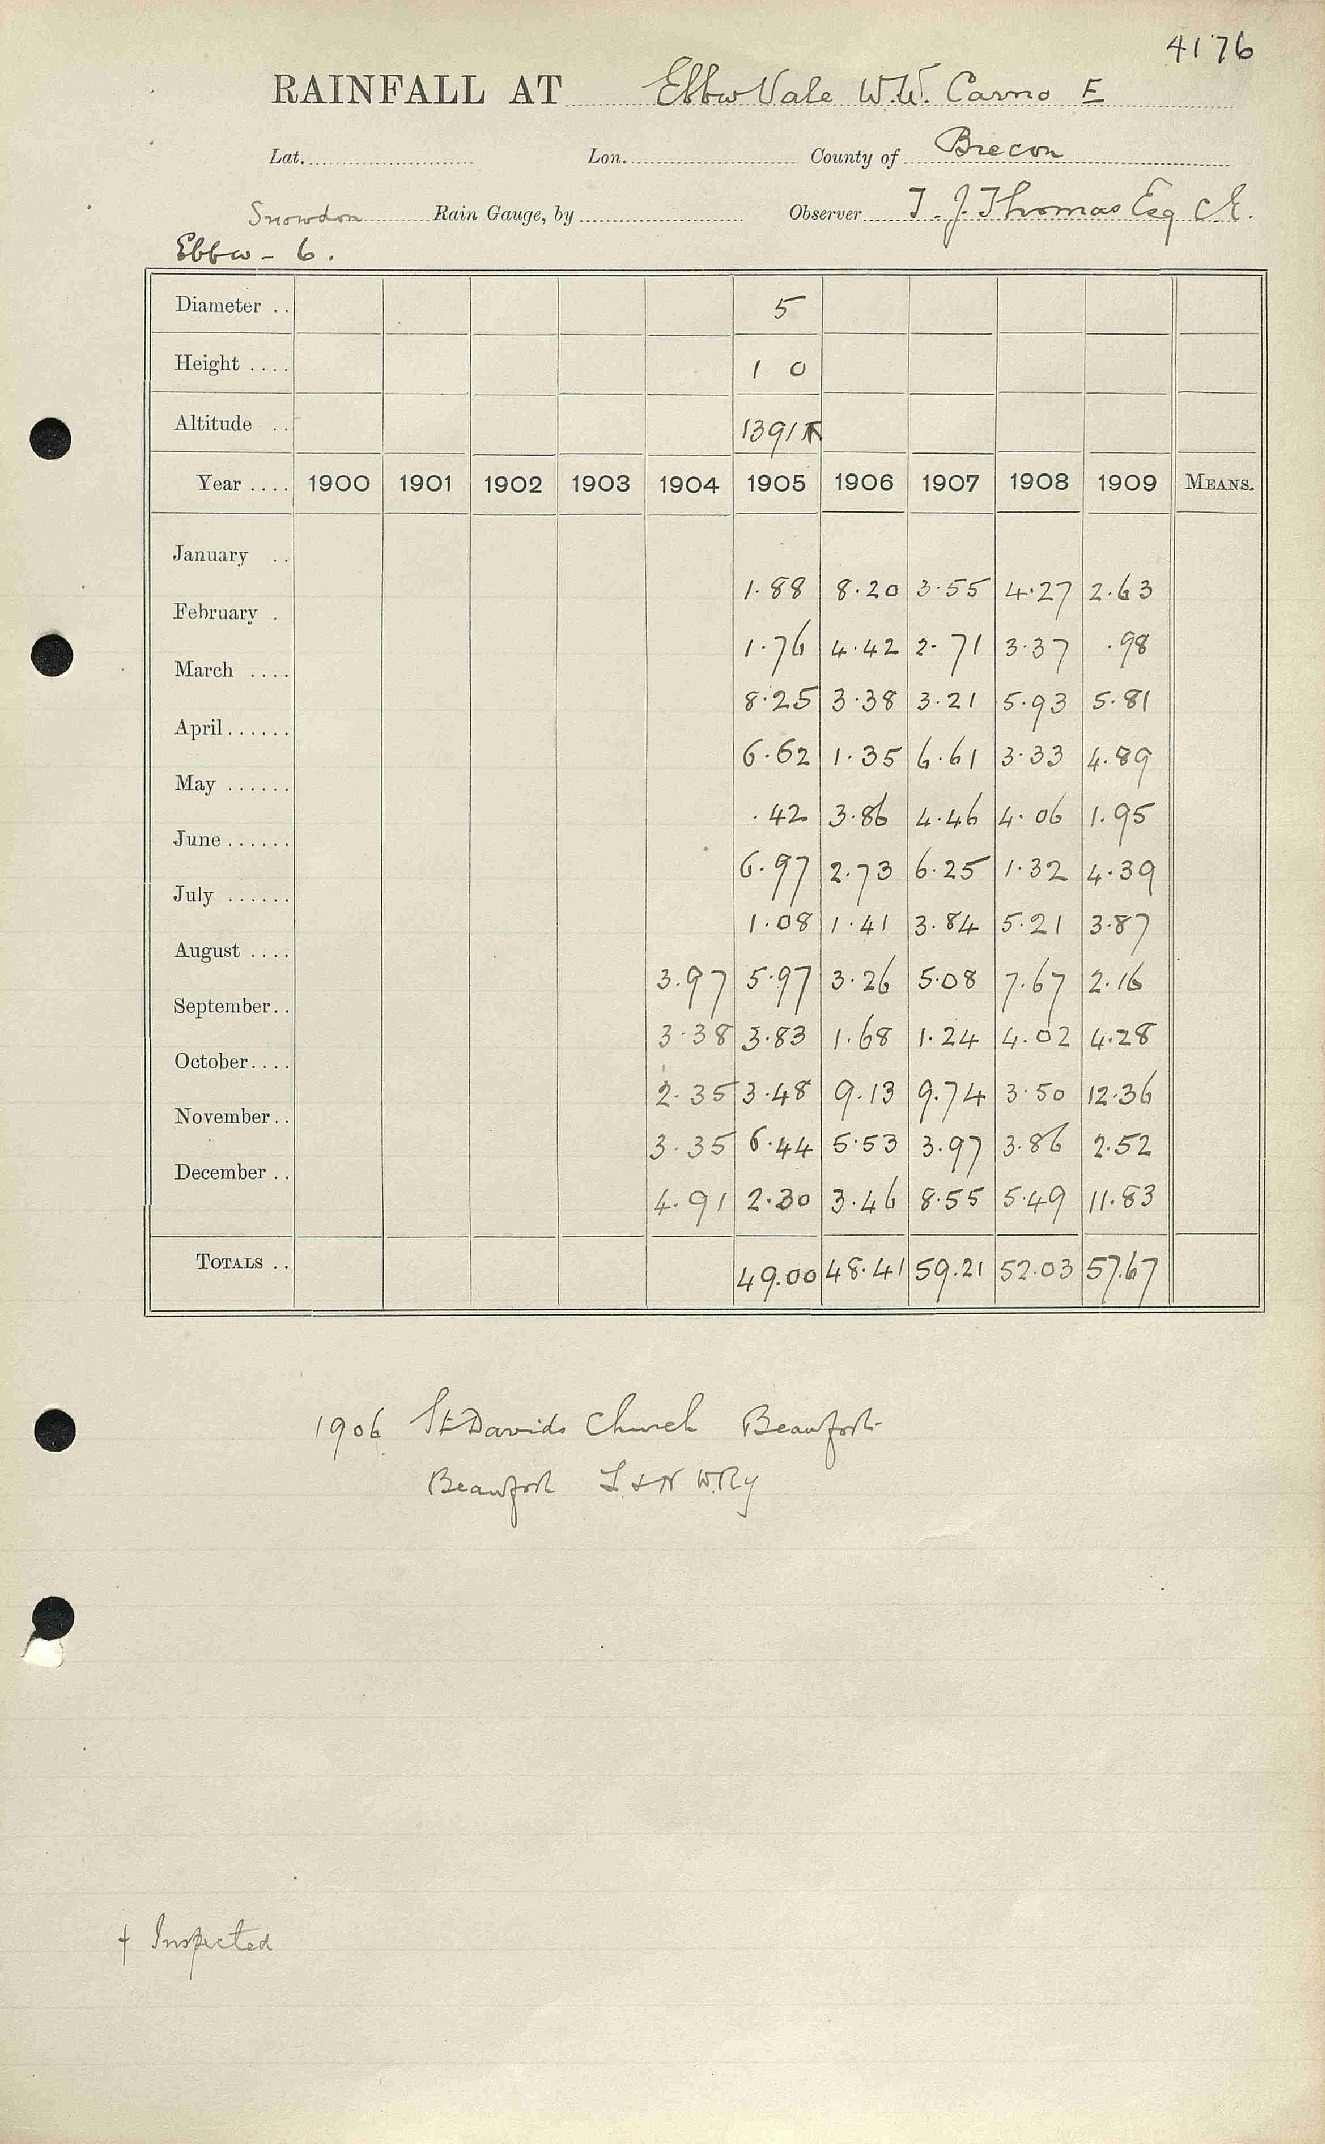 4176
RAINFALL AT Ebbw Vale W.W. Carno E
Lat. Lon. County of Brecon
Snowdon Rain Gauge, by Observer T. J. Thomas Esq C.E.
Ebbw - 6.
Diameter .. 5
Height .... 1 0
Altitude .. 1391
Year .... 1900 1901 1902 1903 1904 1905 1906 1907 1908 1909 MEANS.
January .. 1.88 8.20 3.55 4.27 2.63
February . 1.76 4.42 2.71 3.37 .98
March .... 8.25 3.38 3.21 5.93 5.81
April...... 6.62 1.35 6.61 3.33 4.89
May ...... .42 3.86 4.46 4.06 1.95
June...... 6.97 2.73 6.25 1.32 4.39
July ...... 1.08 1.41 3.84 5.21 3.87
August .... 3.97 5.97 3.26 5.08 7.67 2.16
September.. 3.38 3.83 1.68 1.24 4.02 4.28
October.... 2.35 3.48 9.13 9.74 3.50 12.36
November.. 3.35 6.44 5.53 3.97 3.86 2.52
December .. 4.91 2.30 3.46 8.55 5.49 11.83
TOTALS .. 49.00 48.41 59.21 52.03 57.67
1906 St Davids Church Beaufort
Beaufort L & N W.Ry
† Inspected